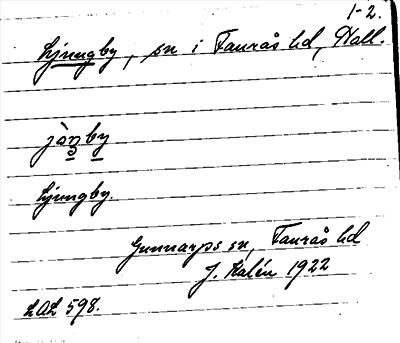 1-2.
Ljungby, sn i Faurås hd, Hall.
jòŋby
Ljungby.
Gunnarps sn, Faurås hd
J. Kalén 1922
LAL 598.